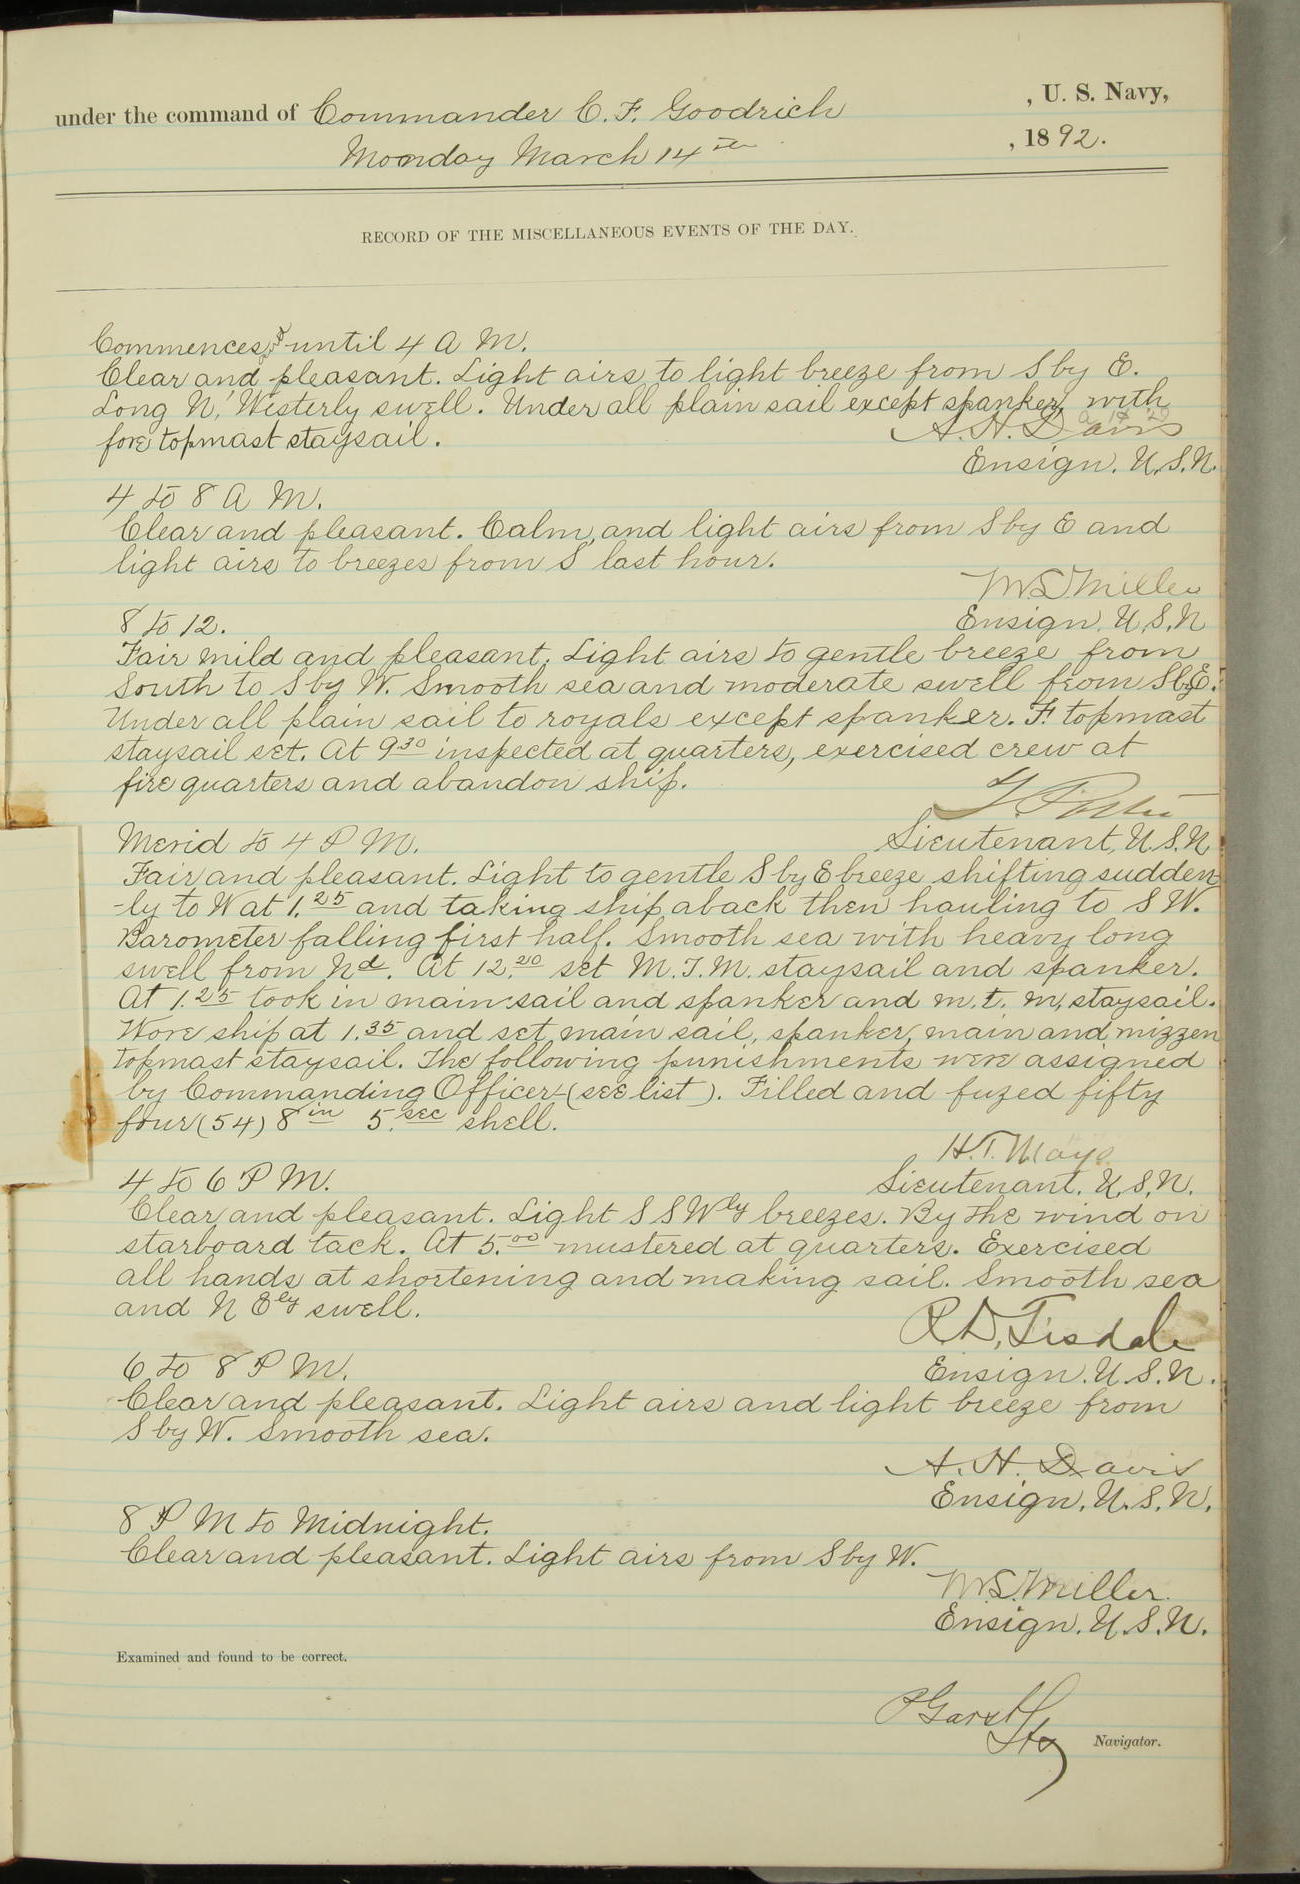 under the command of Commander C. F. Goodrich , U. S. Navy,
Monday March 14th , 1892.
RECORD OF THE MISCELLANEOUS EVENTS OF THE DAY.
Commences & until 4 A M.
Clear and pleasant. Light airs to light breeze from S by E.
Long N' Westerly swell. Under all plain sail except spanker, with
fore topmast staysail.
A. H. Davis
Ensign. U.S.N.
4 to 8 A M.
Clear and pleasant. Calm, and light airs from S by E and
light airs to breezes from S last hour.
M L Miller
Ensign. U.S.N
8 to 12.
Fair mild and pleasant. Light airs to gentle breeze from
South to S by W. Smooth sea and moderate swell from S by E.
Under all plain sail to royals except spanker. F. topmast
staysail set. At 9 30 inspected at quarters, exercised crew at
fire quarters and abandon ship.
Lieutenant, U.S.N.
Merid to 4 P M.
Fair and pleasant. Light to gentle S by E breeze shifting sudden
-ly to W at 1.25 and taking ship aback then hauling to S W.
Barometer falling first half. Smooth sea with heavy long
swell from Nd. At 12.20 set M. T. M. staysail and spanker.
At 1.25 took in mainsail and spanker and m. t. m. staysail.
Wore ship at 1.35 and set main sail, spanker, main and mizzen
topmast staysail. The following punishments were assigned
by Commanding Officer-(see list). Filled and fuzed fifty
four (54) 8 in 5. sec shell.
H. T. Mayo
Lieutenant. U.S.N.
4 to 6 P M.
Clear and pleasant. Light S S Wly breezes. By the wind on
starboard tack. At 5.00 mustered at quarters. Exercised
all hands at shortening and making sail. Smooth sea
and N Ely swell.
R. D. Tisdale
Ensign. U.S.N.
6 to 8 P M.
Clear and pleasant. Light airs and light breeze from
S by W. Smooth sea.
A. H. Davis
Ensign. U.S.N.
8 P M to Midnight.
Clear and pleasant. Light airs from S by W.
M L Miller.
Ensign. U.S.N.
Examined and found to be correct.
P Garst
Navigator.